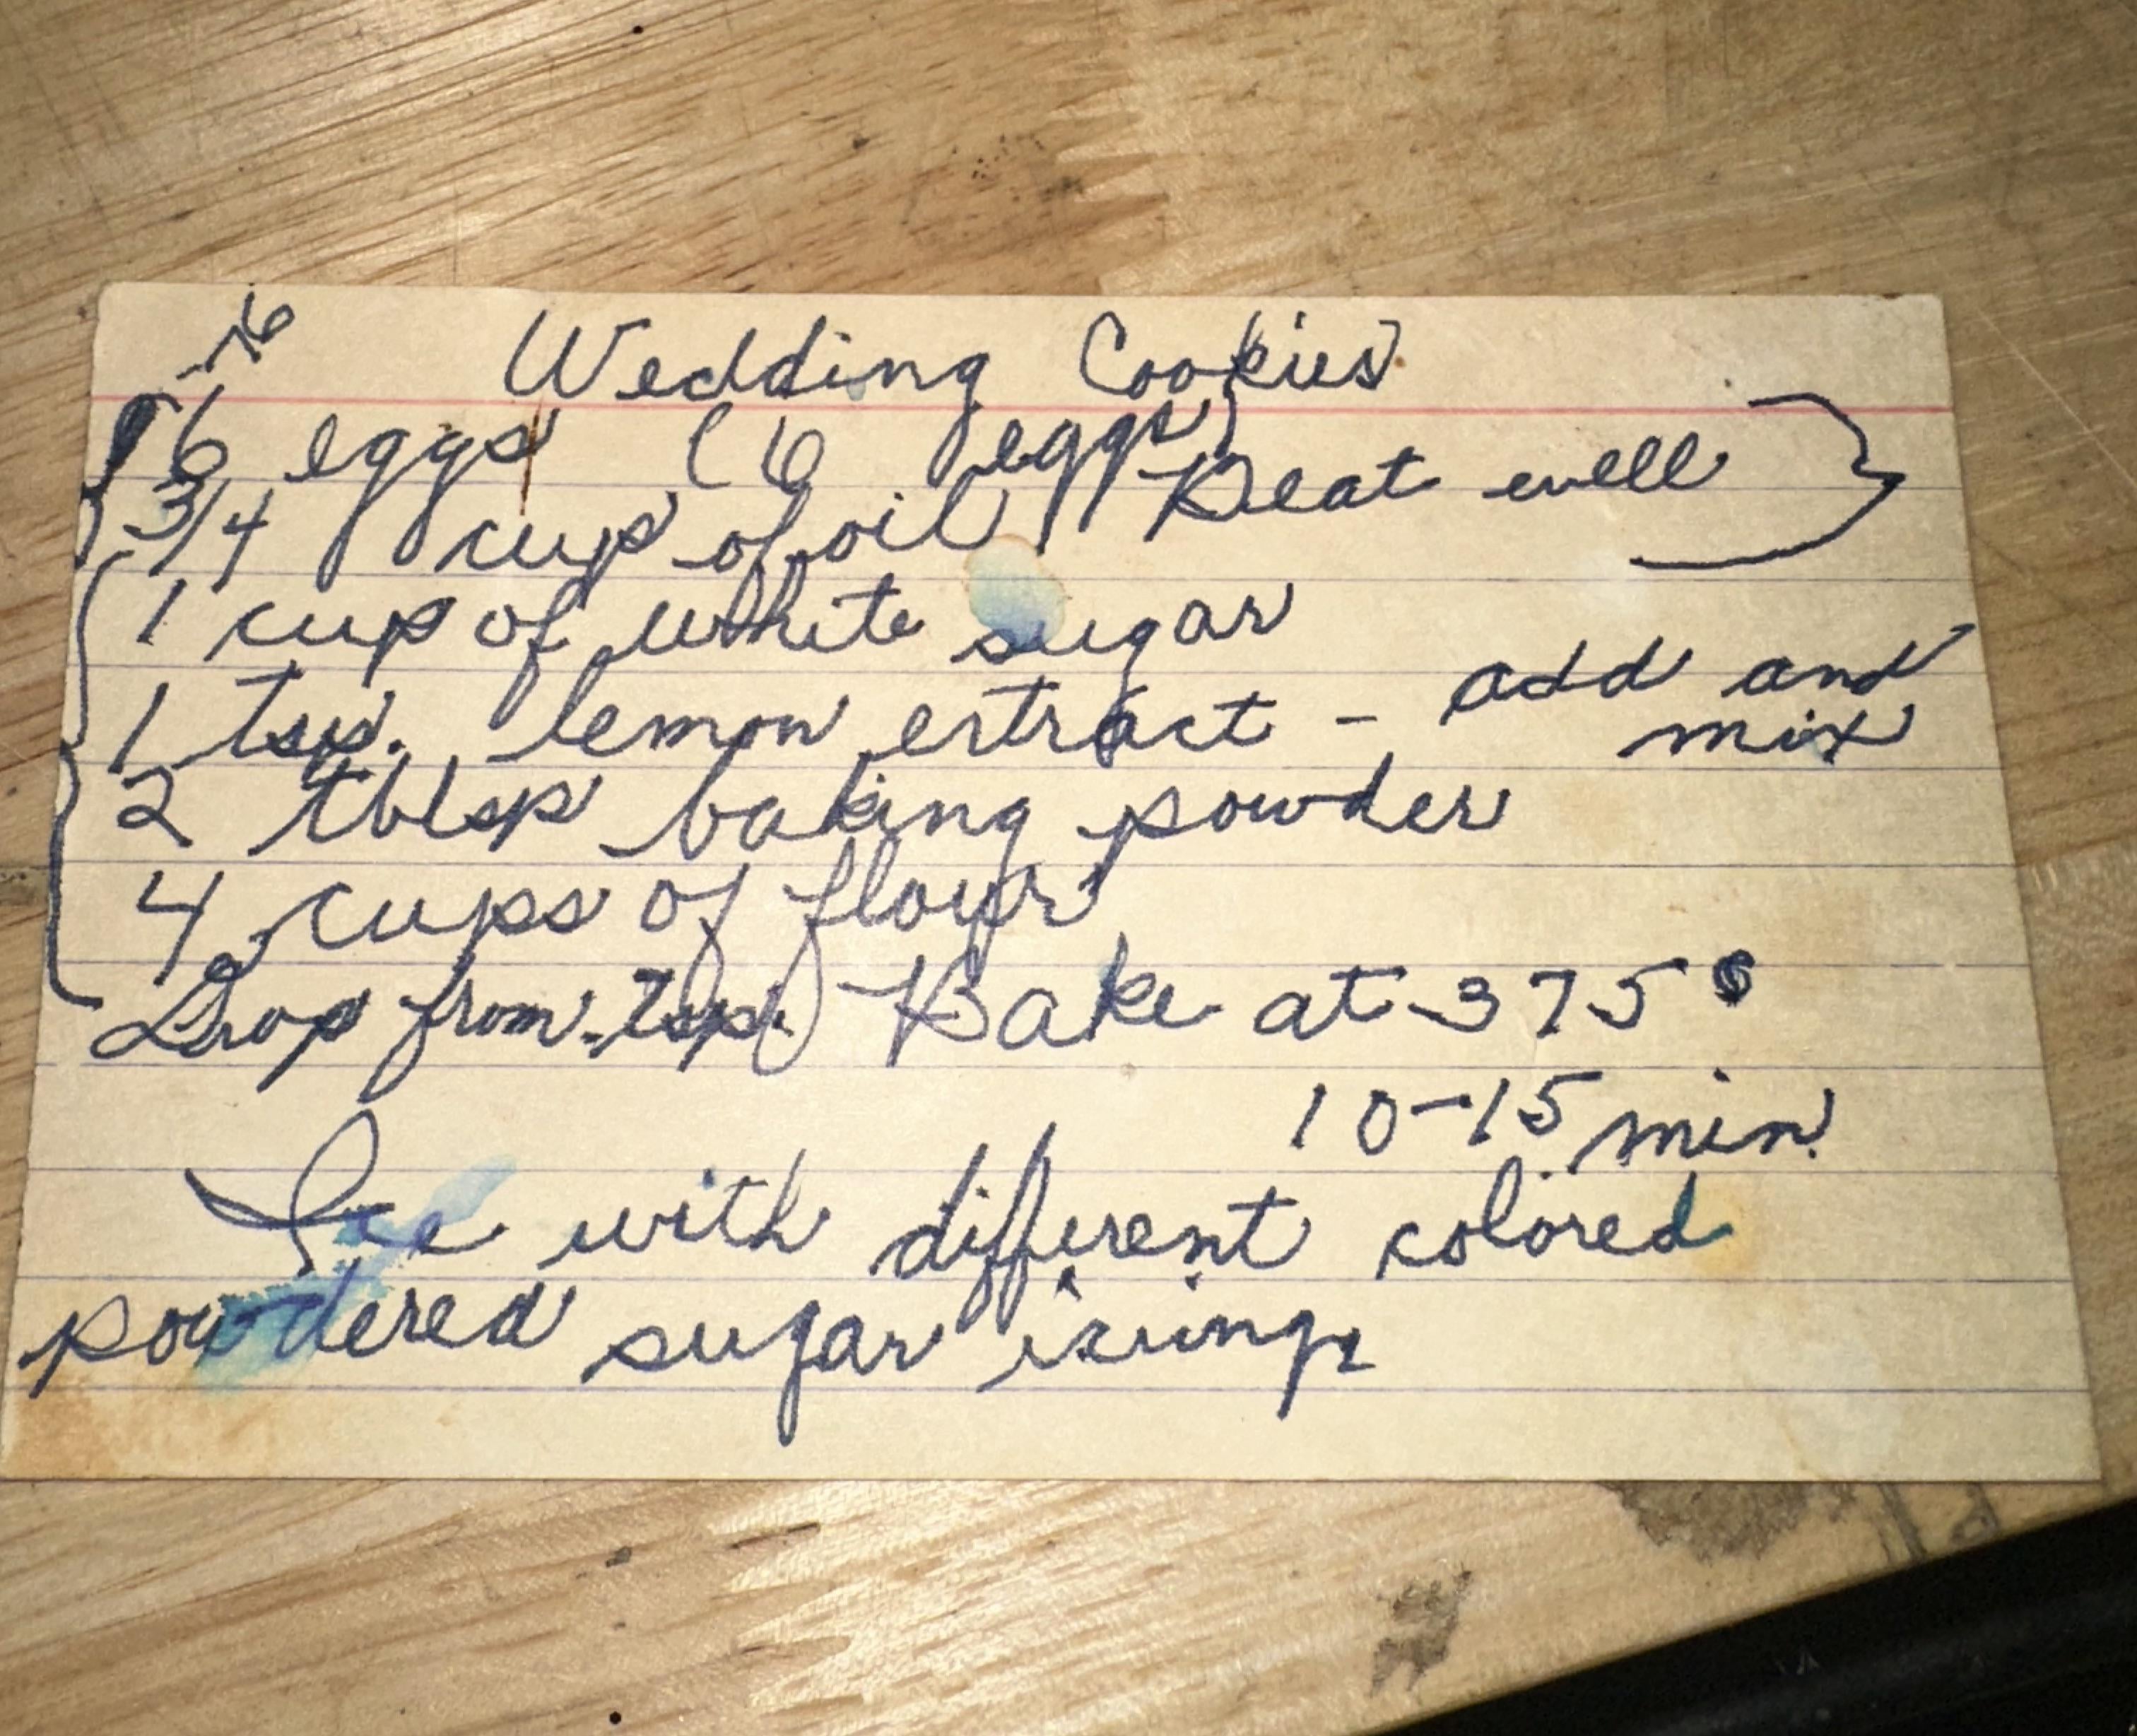 Wedding Cookies
6 eggs (6 eggs)
3/4 cup of oil Beat well
1 cup of white sugar
1 tsp. lemon extract - add and
mix
2 tblsp baking powder
4 cups of flour
Drop from tsp. Bake at 375°
10-15 min.
Ice with different colored
powdered sugar icing